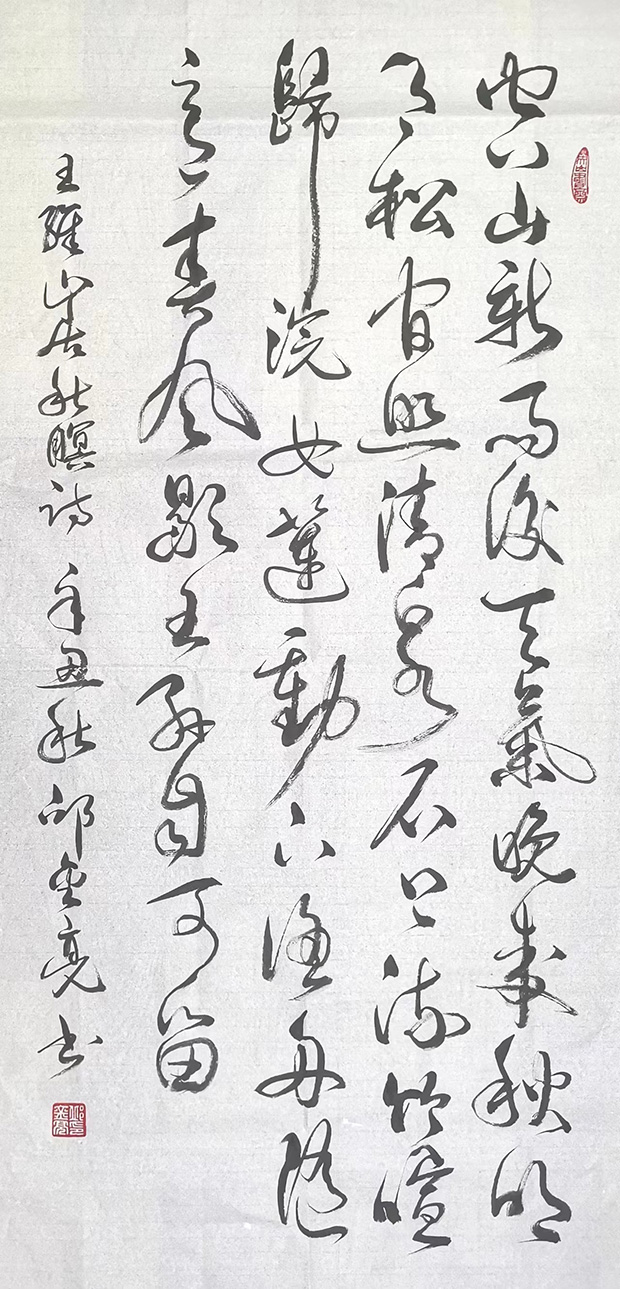 空山新雨後天氣晚來秋明
月松間照清泉石上流竹喧
歸浣女蓮動下漁舟隨
意春风歇王孫自可留
王維山居秋暝詩 辛丑秋邱金亮书